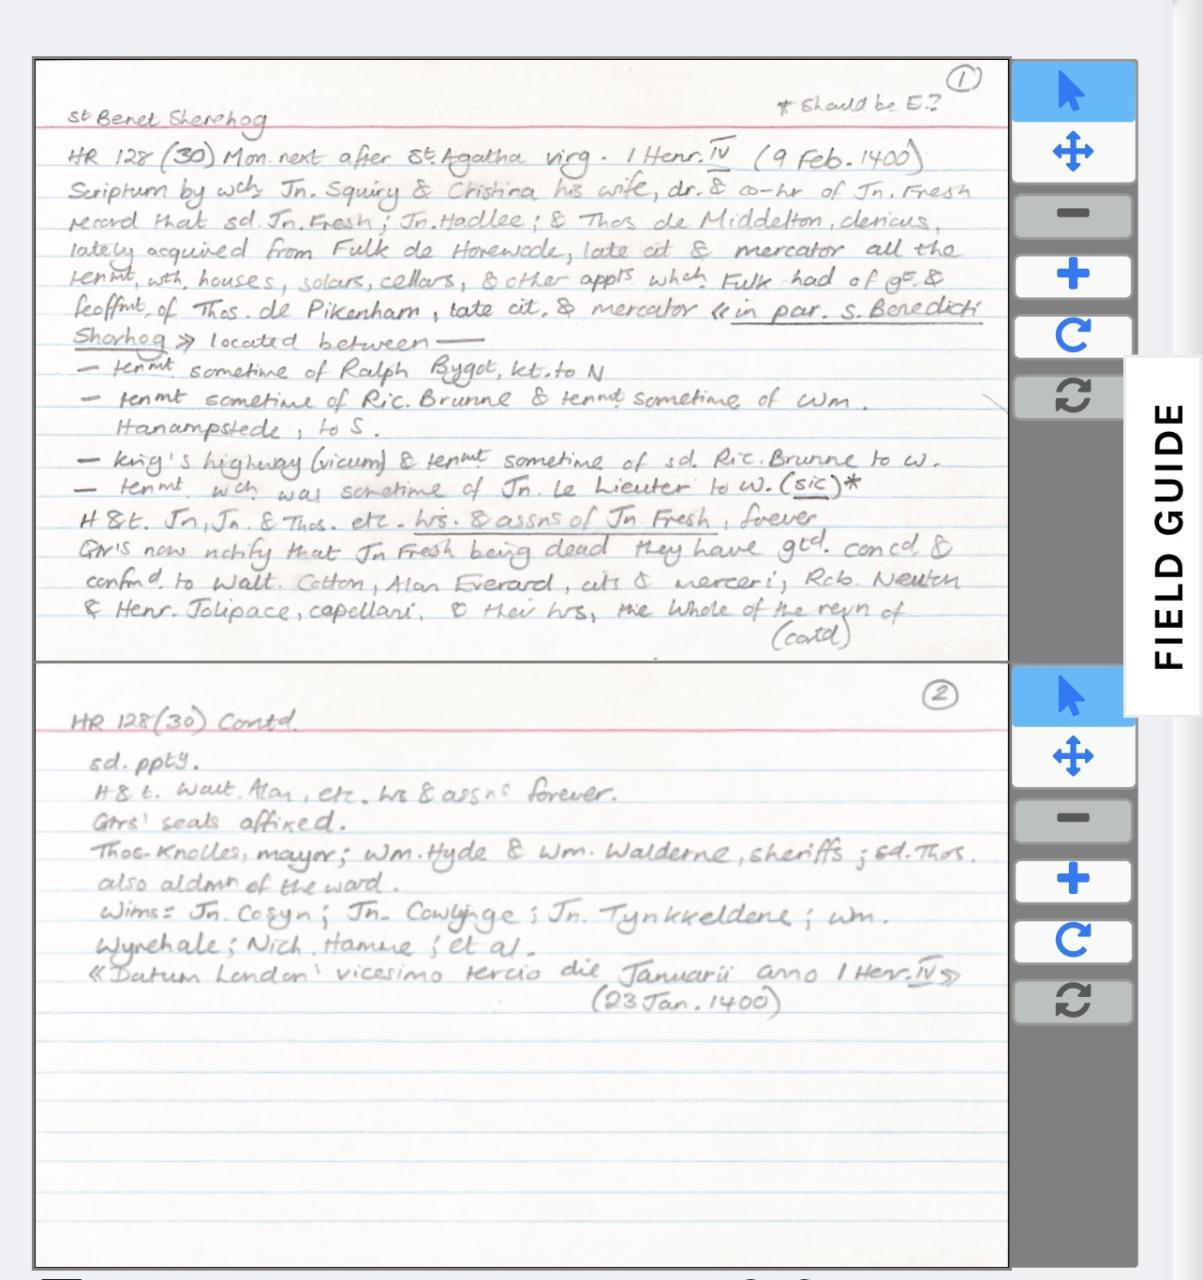 ①
* Should be E.?
St Benet Sherehog
HR 128 (30) Mon. next after St. Agatha virg. 1 Henr. IV (9 Feb. 1400)
Scriptum by wch Jn. Squiry & Cristina his wife, dr. & co-hr of Jn. Fresh
record that sd. Jn. Fresh; Jn. Hadlee; & Thos de Middelton, clericus,
lately acquired from Fulk de Horewode, late cit & mercator all the
tenmt, wth. houses, solars, cellars, & other appts which Fulk had of gt. &
feoffmt. of Thos. de Pikenham, late cit. & mercator «in par. S. Benedicti
Shorhog» located between —
— tenmt sometime of Ralph Bygot, kt. to N
— tenmt sometime of Ric. Brunne & tenmt sometime of Wm.
Hanampstede, to S.
— king's highway (vicum) & tenmt sometime of sd. Ric. Brunne to W.
— tenmt wch was sometime of Jn. Le Lieuter to W. (sic)*
H & t. Jn, Jn. & Thos. etc. hrs. & assns of Jn. Fresh, forever
Gtrs now notify that Jn Fresh being dead they have gtd. concd &
confmd. to Walt. Cotton, Alan Everard, cits & merceri, Rob. Newton
& Henr. Jolipace, capellani. & their hrs, the whole of the revn of
(contd)
②
HR 128(30) Contd.
sd. ppty.
H & t. Walt. Alan, etc. hrs & assns forever.
Gtrs' seals affixed.
Thos. Knolles, mayor; Wm. Hyde & Wm. Walderne, sheriffs; sd. Thos.
also aldmn of the ward.
Witns: Jn. Cosyn; Jn. Cowlynge; Jn. Tynkkeldene; Wm.
Wynehale; Nich. Hamme; et al.
«Datum London' vicesimo tercio die Januarii anno 1 Hen. IV»
(23 Jan. 1400)
FIELD GUIDE